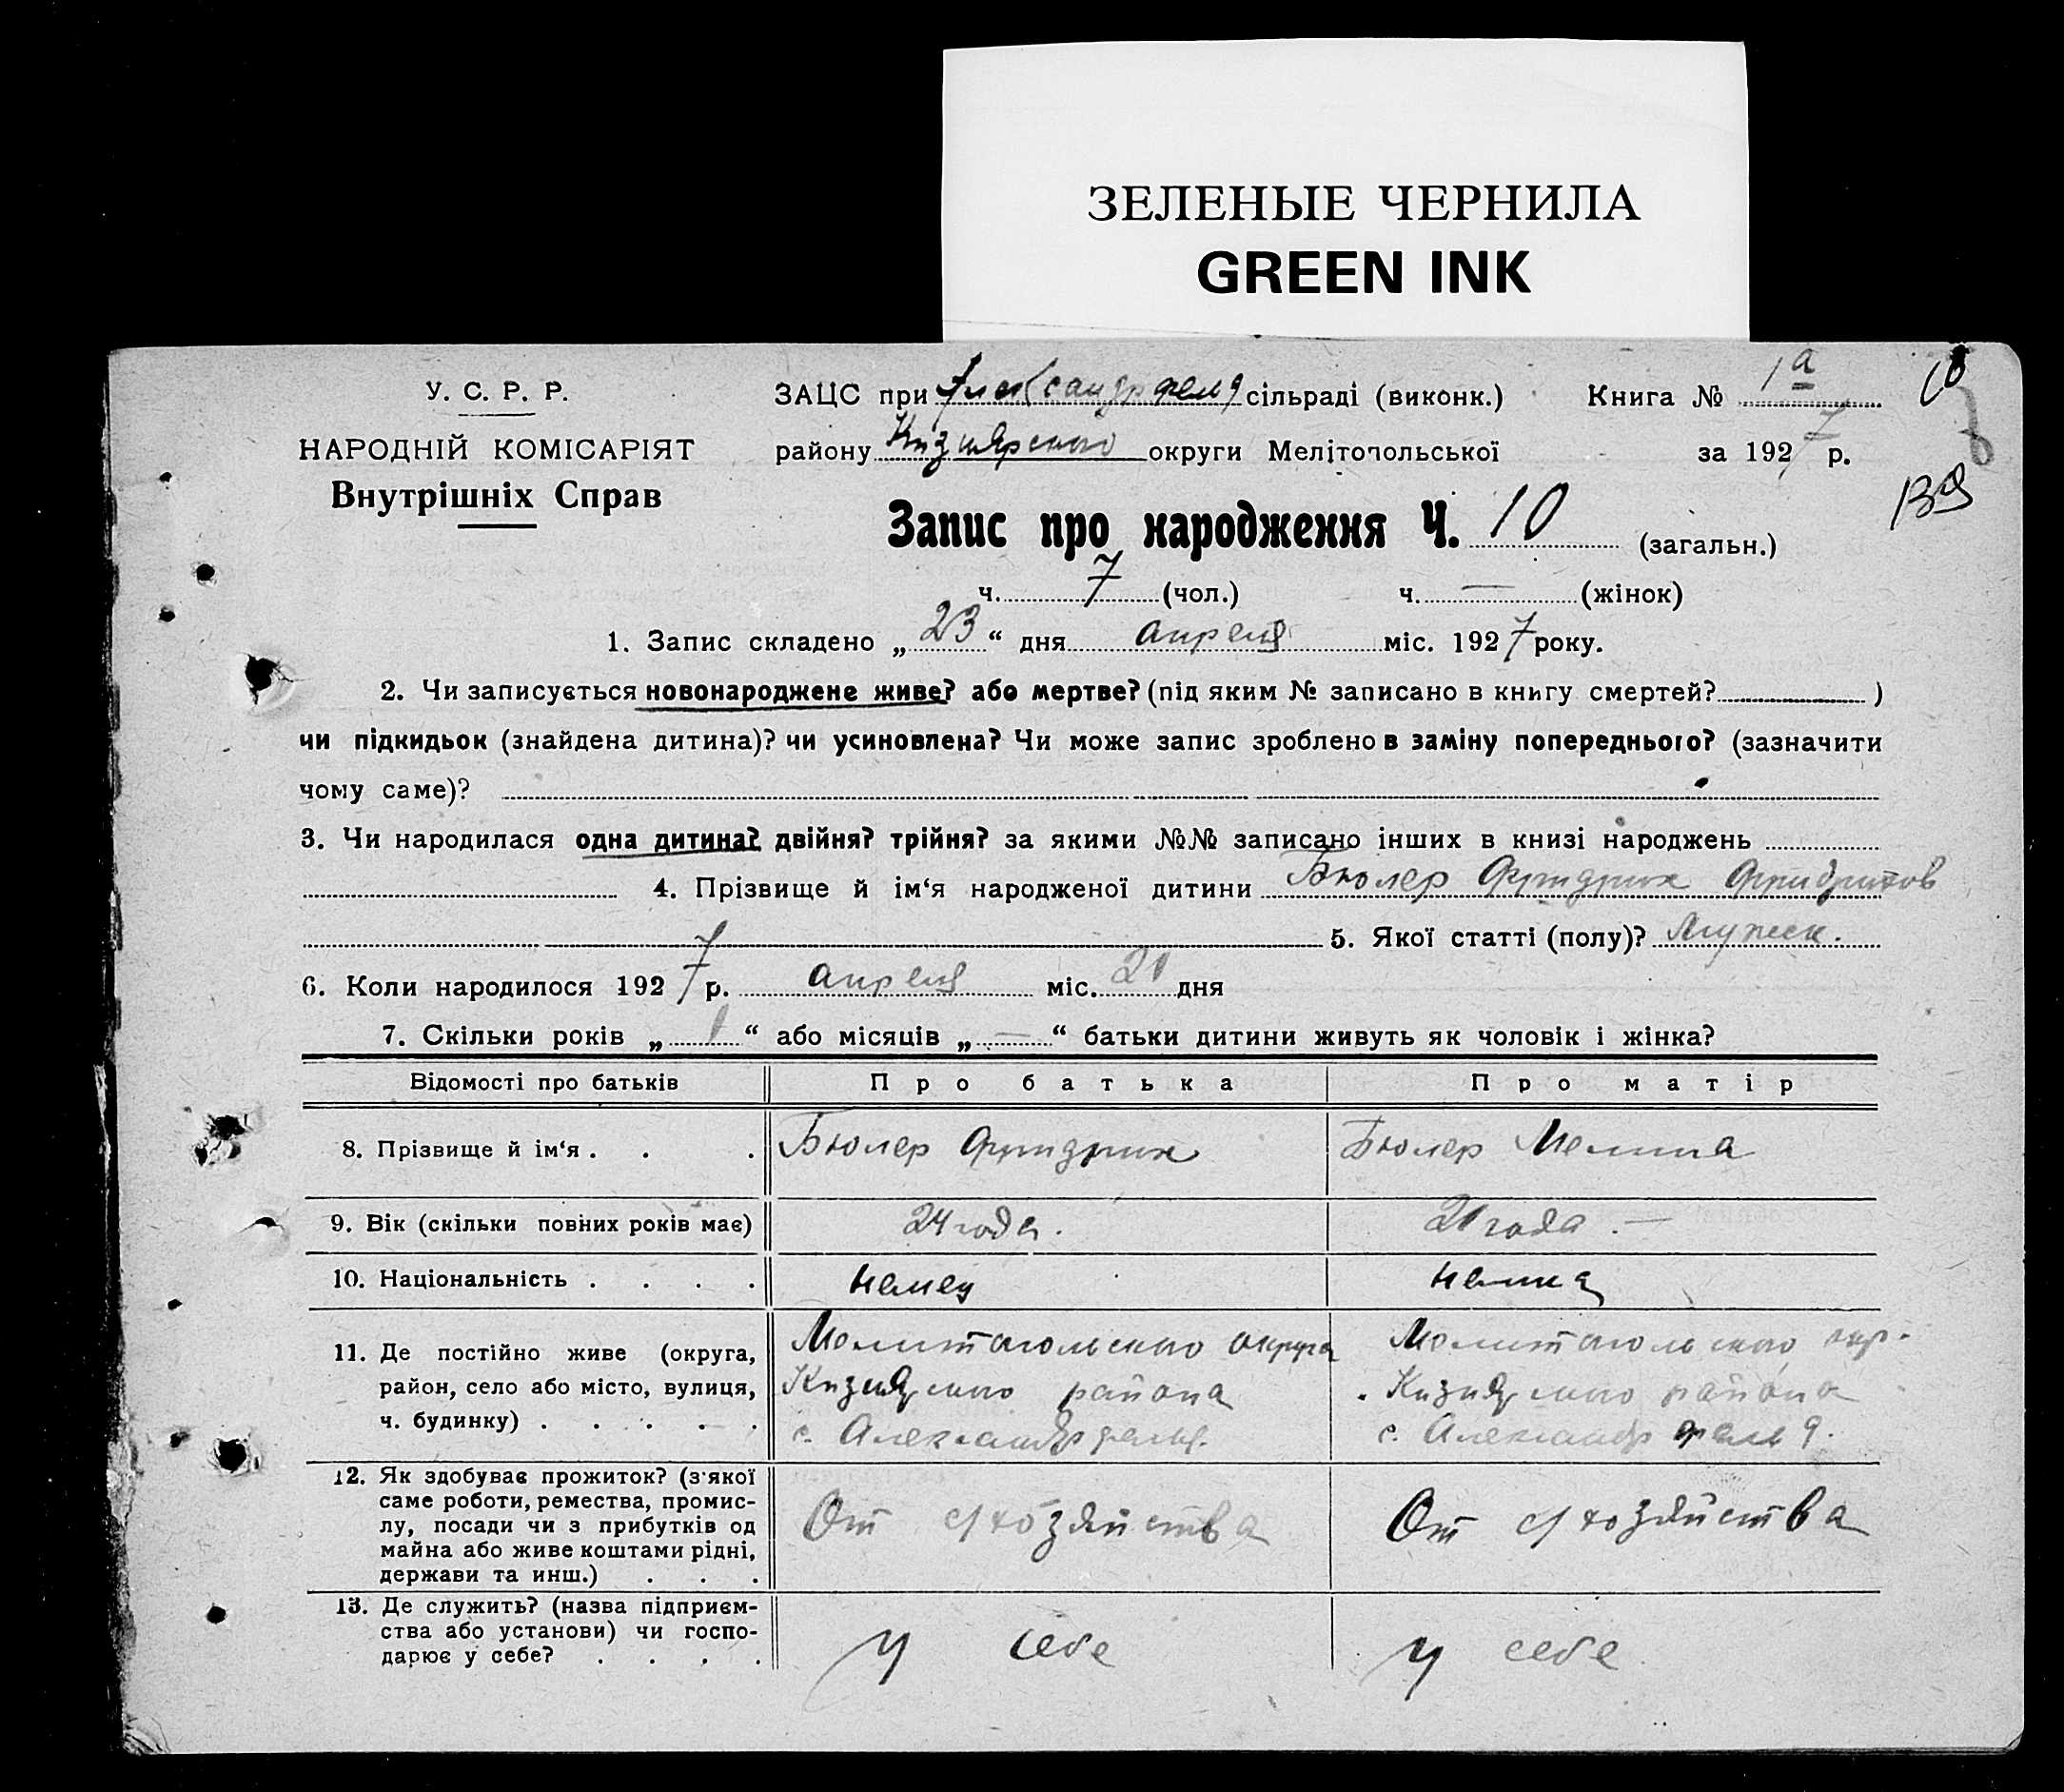 ЗЕЛЕНЫЕ ЧЕРНИЛА
GREEN INK
У. С. Р. Р.
НАРОДНІЙ КОМІСАРІЯТ
Внутрішніх Справ
ЗАЦС при Александрфельд сільраді (виконк.) Книга № 1а
району Кизиярского округи Мелітопольської за 1927 р.
Запис про народження Ч. 10 (загальн.)
ч. 7 (чол.) ч. — (жінок)
1. Запис складено „ 23 “ дня апреля міс. 1927 року.
2. Чи записується новонароджене живе? або мертве? (під яким № записано в книгу смертей? )
чи підкидьок (знайдена дитина)? чи усиновлена? Чи може запис зроблено в заміну попереднього? (зазначити
чому саме)?
3. Чи народилася одна дитина? двійня? трійня? за якими №№ записано інших в книзі народжень
4. Прізвище й ім‘я народженої дитини Бюлер Фридрих Фридрихов
5. Якої статті (полу)? Мужск.
6. Коли народилося 1927 р. апреля міс. 21 дня
7. Скільки років „ 1 “ або місяців „ — “ батьки дитини живуть як чоловік і жінка?
Відомості про батьків Про батька Про матір
8. Прізвище й ім‘я . . . Бюлер Фридрих Бюлер
9. Вік (скільки повних років має) 24 года. 21 года. —
10. Національність . . . . немец немка
11. Де постійно живе (округа,
район, село або місто, вулиця,
ч. будинку) . . . . .
Мелитопольского округа
Кизиярского района
с. Александрфельд.
Мелитопольского окр.
Кизиярского района
с. Александрфельд.
12. Як здобуває прожиток? (з якої
саме роботи, ремества, промис-
лу, посади чи з прибутків од
майна або живе коштами рідні,
держави та инш.) . . .
От с/хозяйства От с/хозяйства
13. Де служить? (назва підприєм-
ства або установи) чи госпо-
дарює у себе? . . . .
у себе у себе